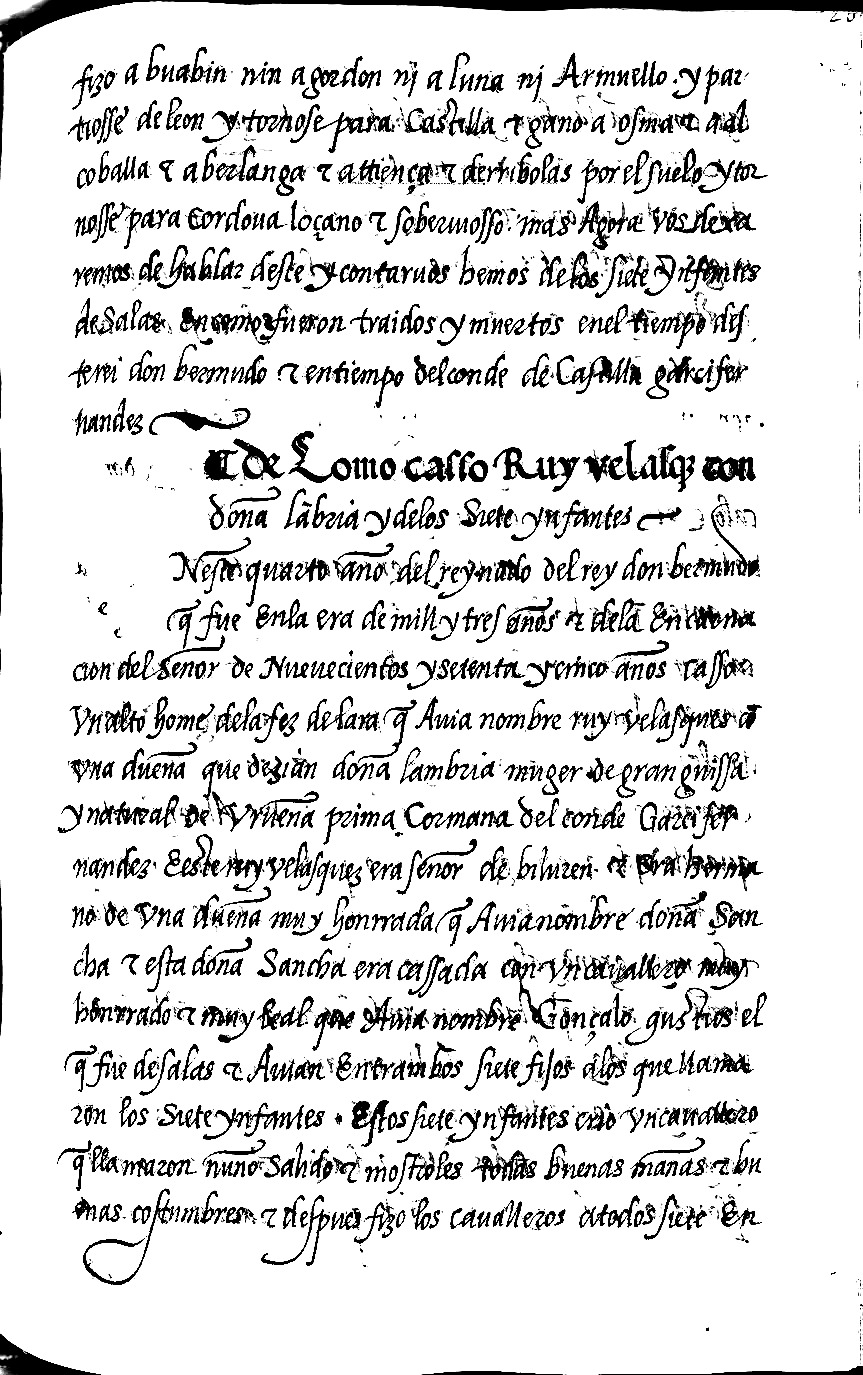 fizo a buabin nin a gordon nj a luna nj Armuello . y par
tiosse de leon y tornose para Castilla τ gano a osma τ a al
coballa τ a berlanga τ a attiença τ derribolas por el suelo y tor
nosse para Cordoua loçano τ soberuiosso . mas Agora vos dexa
remos de hablar deste y contaruos hemos de los siete ynfantes
de Salas En como fueron traidos y muertos en el tiempo des
te rei don bermudo τ en tiempo del conde de Castilla garci fer
nandez
de Como casso Ruy velasqz con
doña lābria y de los Siete ynfantes
Neste quarto año del reynado del rey don bermudo
q̄ fue En la era de mill y tres años τ de la Encarna
cion del Señor de Nueuecientos y setenta y cinco años casso
vn alto home de la fez de lara q̄ Auia nombre ruy velasques cō
vna dueña que dezian doña lambria muger de gran guissa
y natural de Vrueña prima Cormana del conde Garci fer
nandez E este ruy velasquez era señor de biluren τ Era herma
no de vna dueña muy honrrada q̄ Auia nombre doña San
cha τ esta doña Sancha era cassada con vn cauallero muy
honrrado τ muy leal que Auia nombre Gonçalo gustios el
q̄ fue de salas τ Auian Entrambos siete fijos a los que llama
ron los Siete ynfantes . Estos siete ynfantes crio vn cauallero
q̄ llamaron nuño Salido τ mostroles todas buenas mañas τ bu
enas costumbres τ despues fizo los caualleros a todos siete En